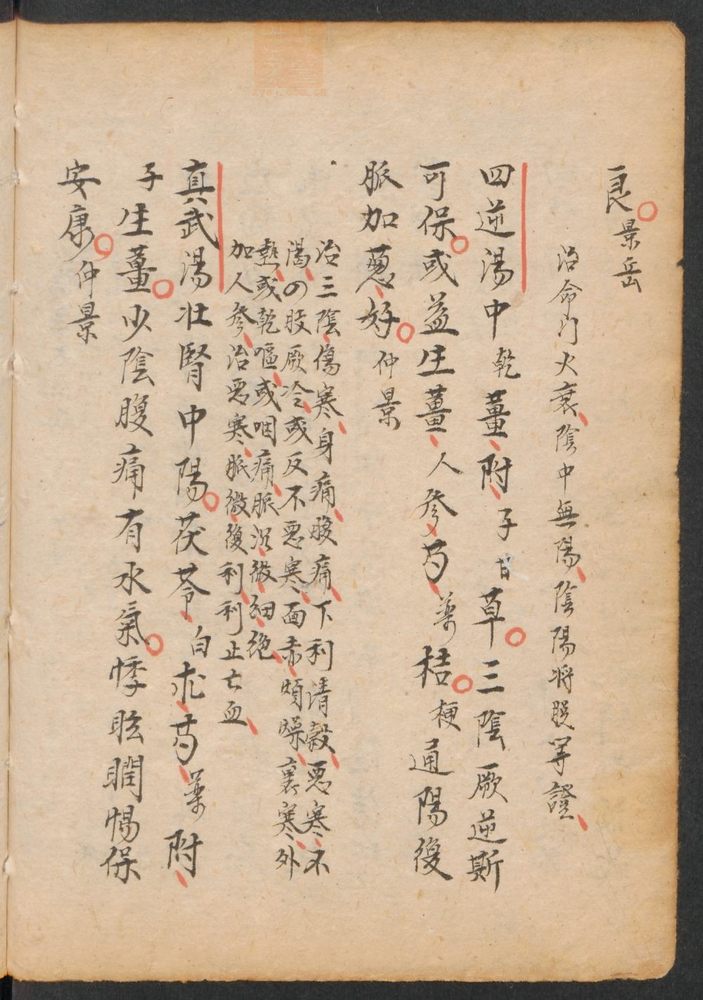 良景岳
治命門火衰陰中無陽陰陽將脱等證
四逆湯中乾薑附子甘草三陰厥逆斯
可保或益生薑人參芍藥桔梗通陽復
脈加蔥好仲景
治三陰傷寒身痛腹痛下利清穀惡寒不
渴四肢厥冷或反不惡寒面赤煩燥裏寒外
熱或乾嘔或咽痛脈沉微細絶
加人參治惡寒脈微復利利止亡血
真武湯壯腎中陽茯苓白朮芍藥附
子生薑少陰腹痛有水氣悸眩瞤惕保
安康仲景